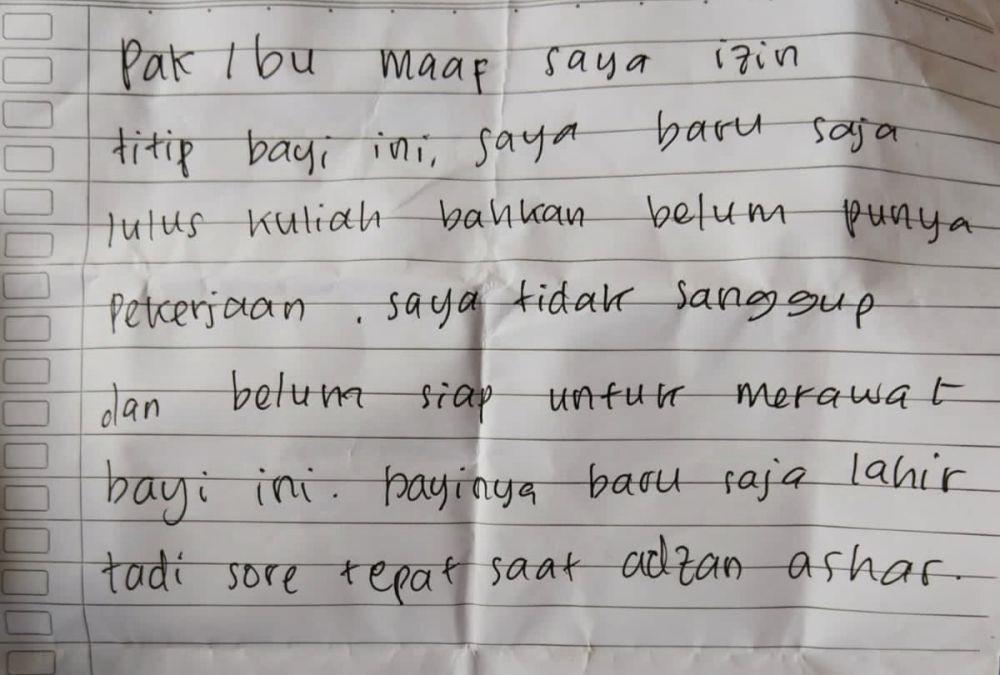 Pak / bu maaf saya izin
titip bayi ini, saya baru saja
lulus kuliah bahkan belum punya
Pekerjaan . saya tidak sanggup
dan belum siap untuk merawat
bayi ini. bayinya baru saja lahir
tadi sore tepat saat adzan ashar.